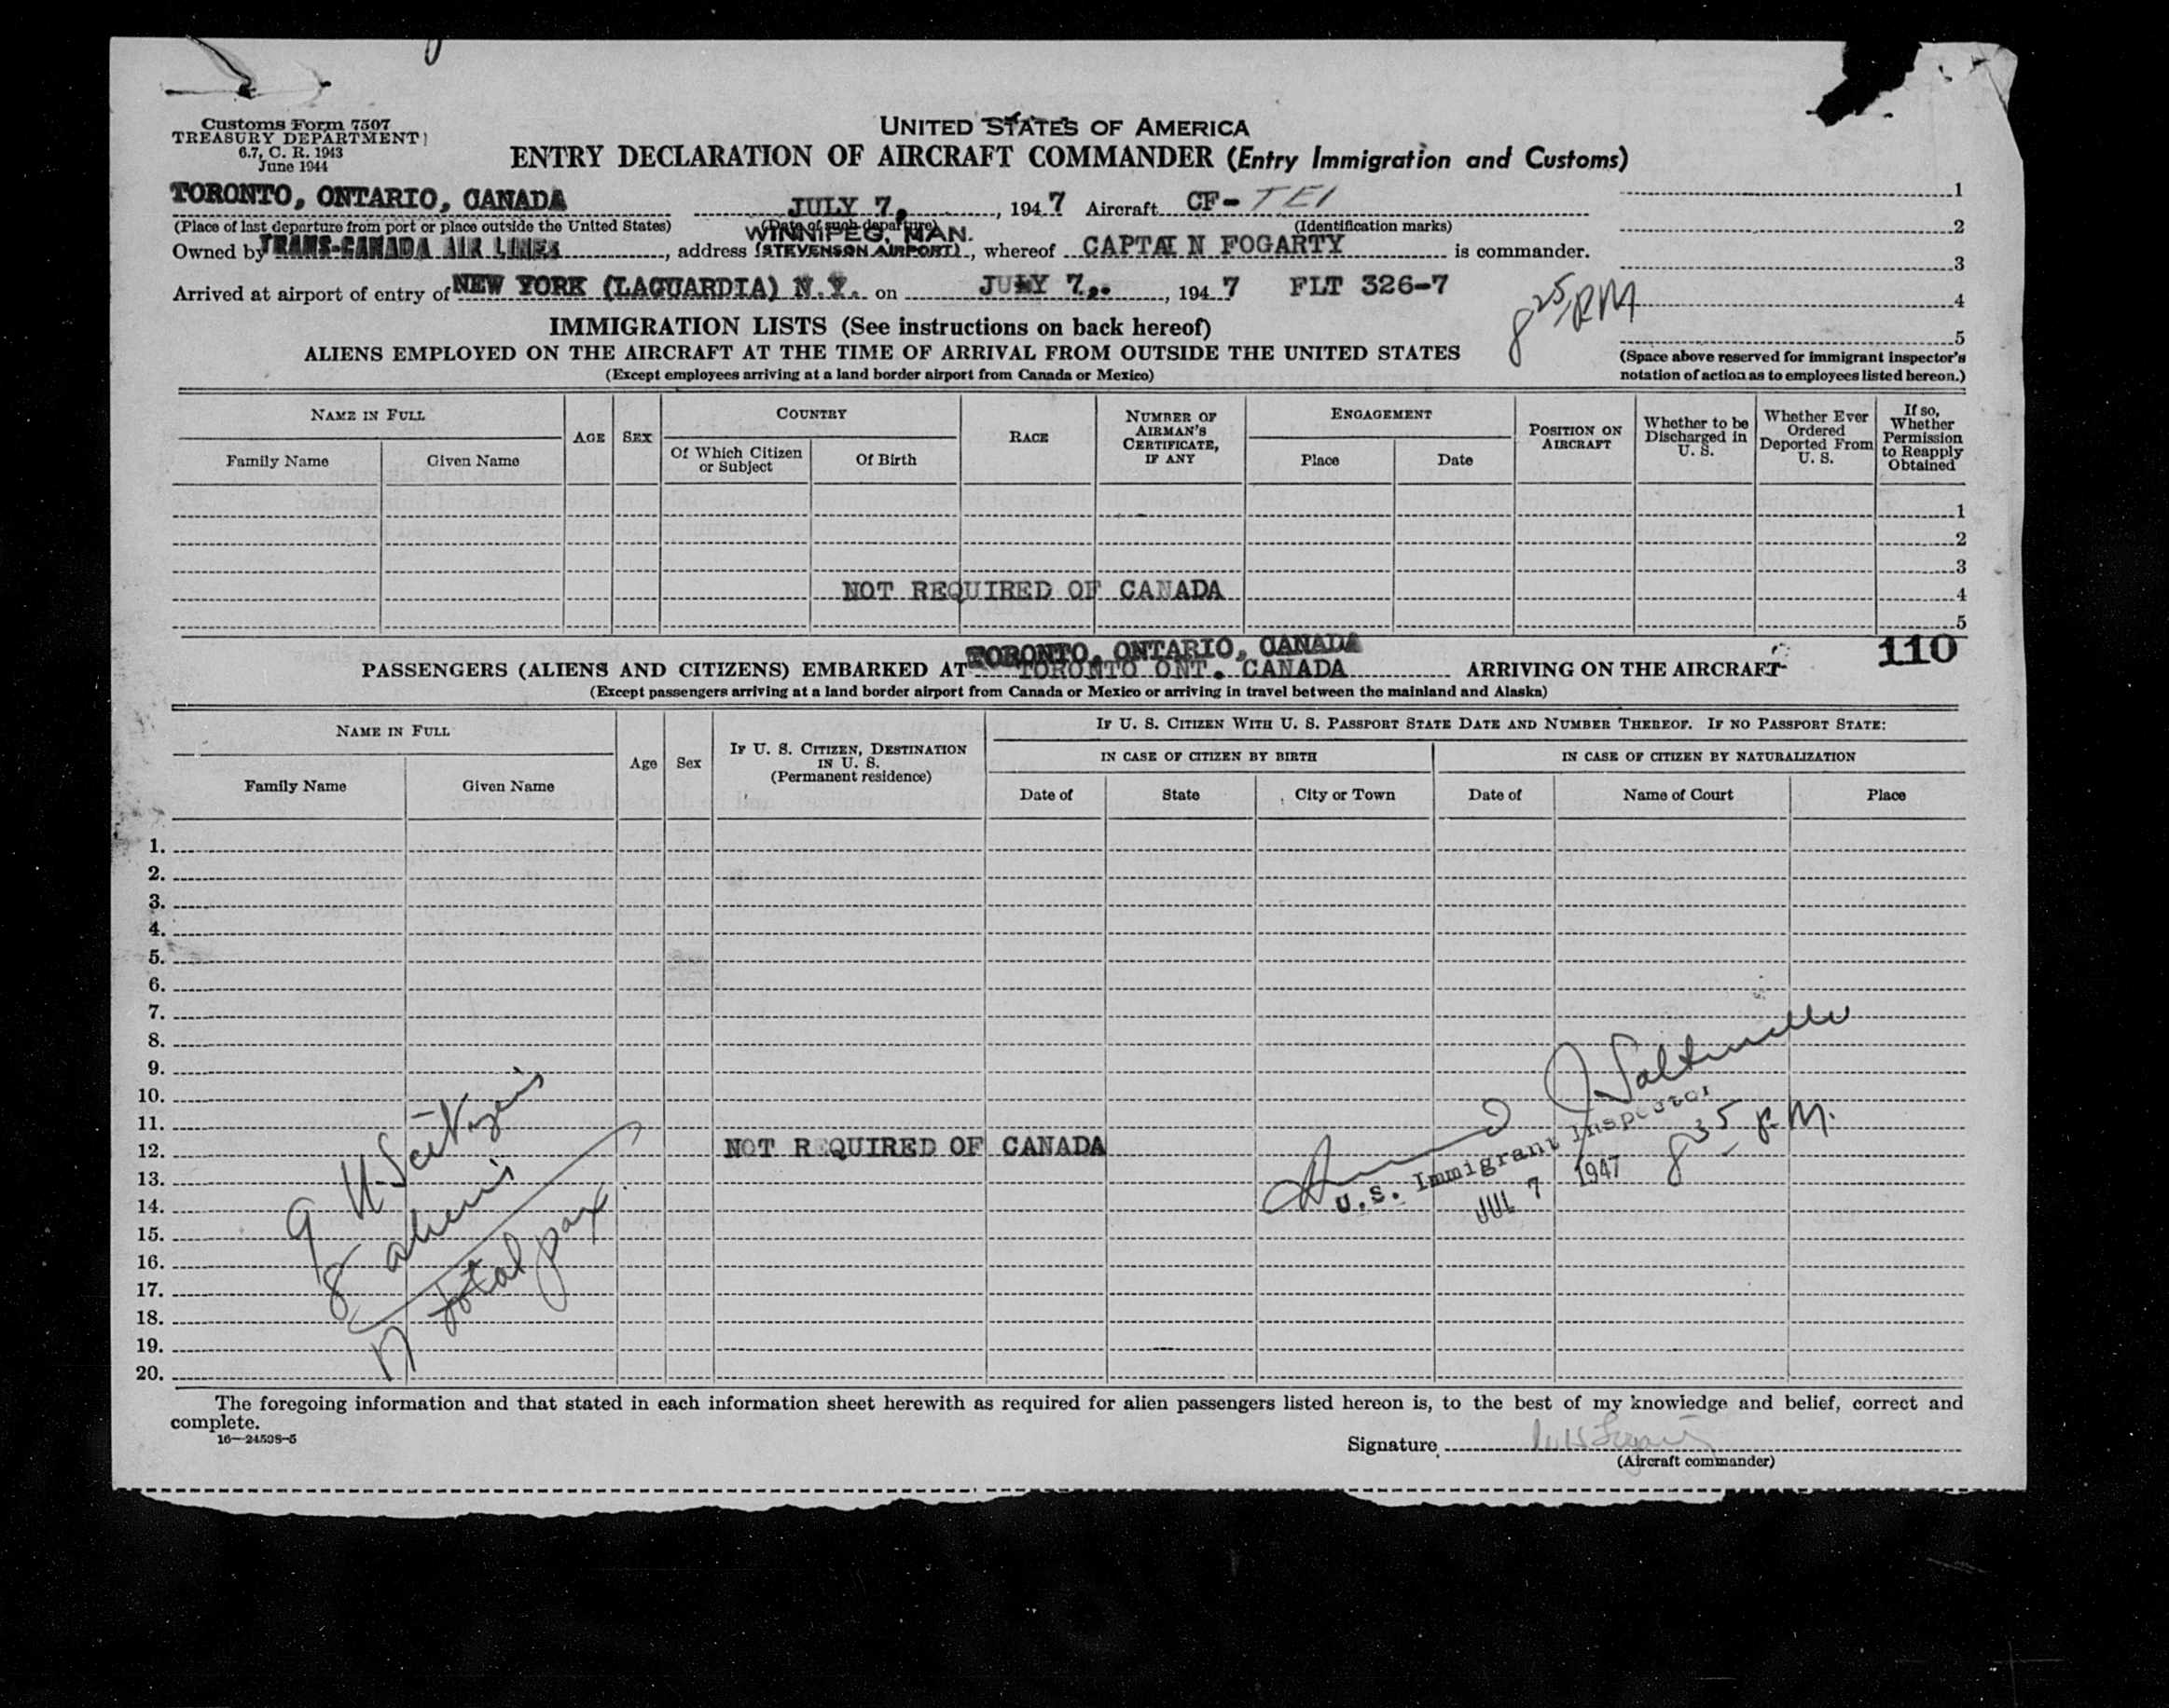 Customs Form 7507
TREASURY DEPARTMENT
6.7, C. R. 1943
June 1944
UNITED STATES OF AMERICA
ENTRY DECLARATION OF AIRCRAFT COMMANDER (Entry Immigration and Customs)
TORONTO, ONTARIO, CANADA JULY 7, 1947 Aircraft CF-TEI 1
(Place of last departure from port or place outside the United States) (Date of such departure) (Identification marks) 2
WINNIPEG, MAN.
Owned by TRANS-CANADA AIR LINES, address (STEVENSON AIRPORT), whereof CAPTAIN FOGARTY is commander. 3
Arrived at airport of entry of NEW YORK (LAGUARDIA) N.Y. on JULY 7, 1947 FLT 326-7 4
825 PM
5
IMMIGRATION LISTS (See instructions on back hereof)
ALIENS EMPLOYED ON THE AIRCRAFT AT THE TIME OF ARRIVAL FROM OUTSIDE THE UNITED STATES
(Except employees arriving at a land border airport from Canada or Mexico)
(Space above reserved for immigrant inspector's
notation of action as to employees listed hereon.)
NAME IN FULL
Family Name Given Name
AGE
SEX
COUNTRY
Of Which Citizen or Subject
Of Birth
RACE
NUMBER OF AIRMAN'S CERTIFICATE, IF ANY
ENGAGEMENT
Place Date
POSITION ON AIRCRAFT
Whether to be Discharged in U. S.
Whether Ever Ordered Deported From U. S.
If so, Whether Permission to Reapply Obtained
1
2
3
NOT REQUIRED OF CANADA 4
5
110
TORONTO, ONTARIO, CANADA
PASSENGERS (ALIENS AND CITIZENS) EMBARKED AT TORONTO ONT. CANADA ARRIVING ON THE AIRCRAFT
(Except passengers arriving at a land border airport from Canada or Mexico or arriving in travel between the mainland and Alaska)
NAME IN FULL
Family Name Given Name
Age
Sex
IF U. S. CITIZEN, DESTINATION IN U. S.
(Permanent residence)
IF U. S. CITIZEN WITH U. S. PASSPORT STATE DATE AND NUMBER THEREOF. IF NO PASSPORT STATE:
IN CASE OF CITIZEN BY BIRTH
Date of State City or Town
IN CASE OF CITIZEN BY NATURALIZATION
Date of Name of Court Place
1.
2.
3.
4.
5.
6.
7.
8.
9.
10.
11.
12. NOT REQUIRED OF CANADA
13.
14.
15.
16.
17.
18.
19.
20.
9 U.S citizens
8 aliens
17 total pax
U.S. Immigrant Inspector
JUL 7 1947
835 P.M.
The foregoing information and that stated in each information sheet herewith as required for alien passengers listed hereon is, to the best of my knowledge and belief, correct and
complete.
16—24508-5
Signature
(Aircraft commander)